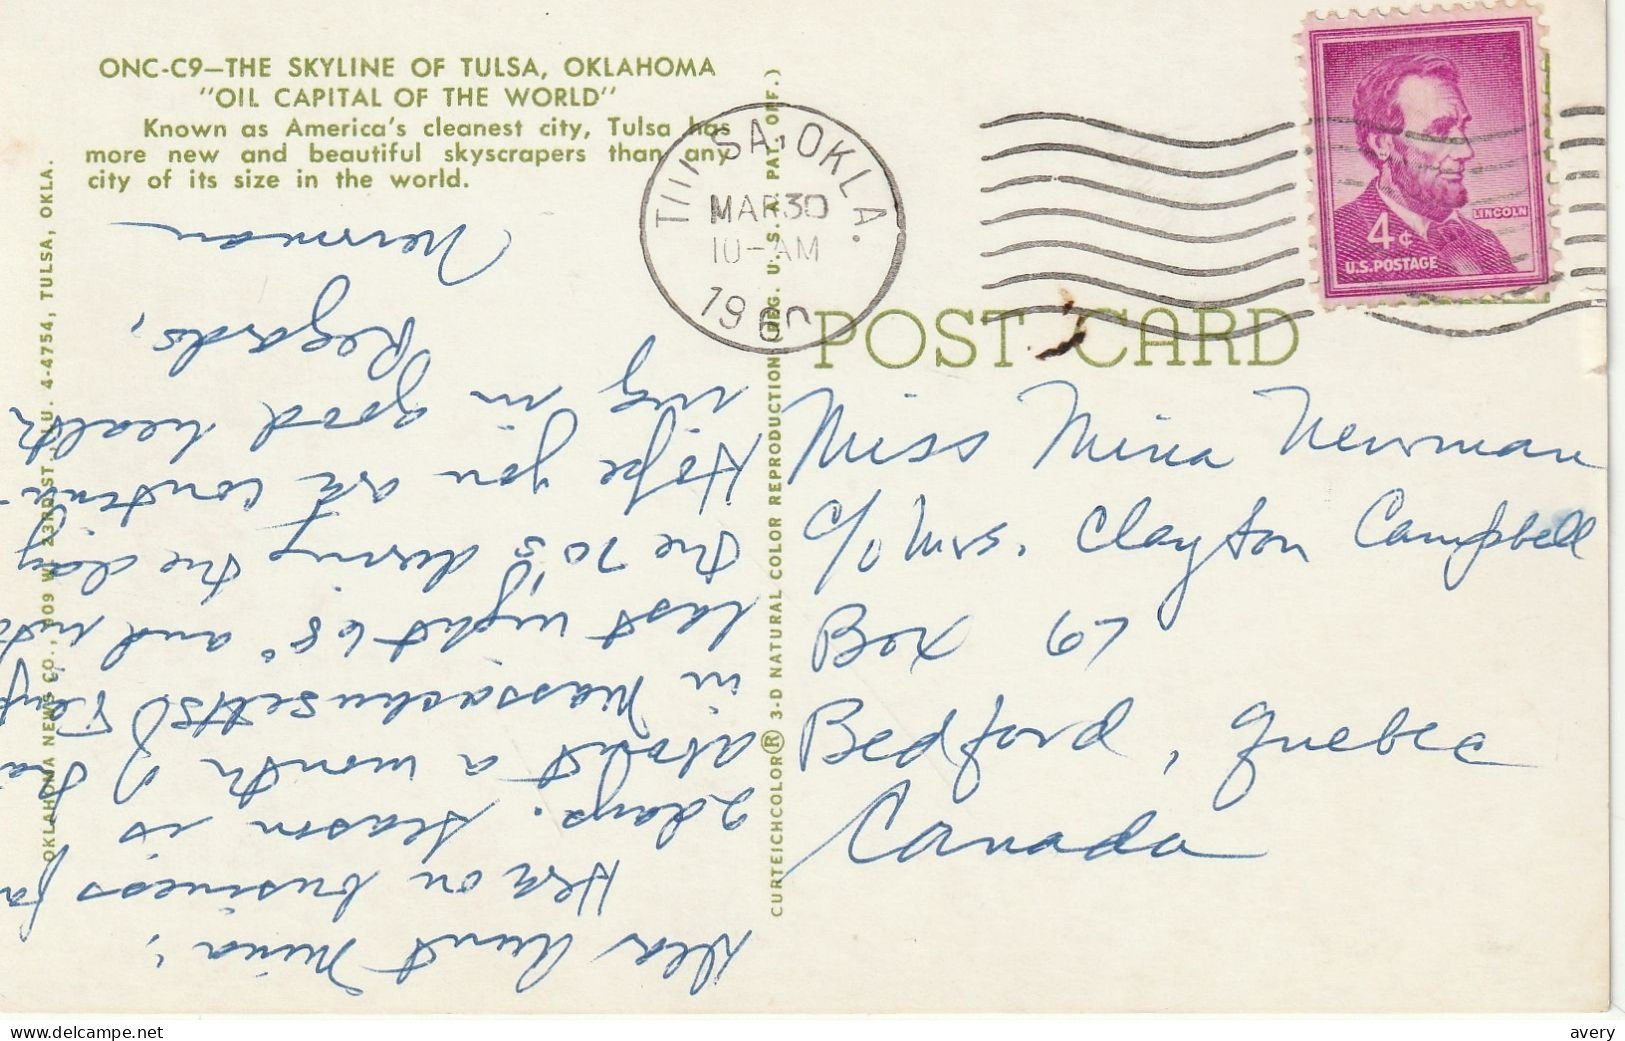 ONC-C9—THE SKYLINE OF TULSA, OKLAHOMA
"OIL CAPITAL OF THE WORLD"
Known as America's cleanest city, Tulsa has
more new and beautiful skyscrapers than any
city of its size in the world.
OKLAHOMA NEWS CO., 909 W. 23RD ST., LU. 4-4754, TULSA, OKLA.
CURTEICHCOLOR® 3-D NATURAL COLOR REPRODUCTION (REG. U. S. A. PAT. OFF.)
TULSA, OKLA.
MAR 30
10-AM
1960
LINCOLN
4¢
U.S. POSTAGE
POST CARD
Miss Mina Newman
c/o Mrs. Clayton Campbell
Box 67
Bedford, Quebec
Canada
Dear Aunt Mina:
Here on business for
2 days. Season is
about a month
in Massachusetts.
last night 68° and into
the 70's during the day
Hope you are continu-
ing in good health
Regards,
Newman